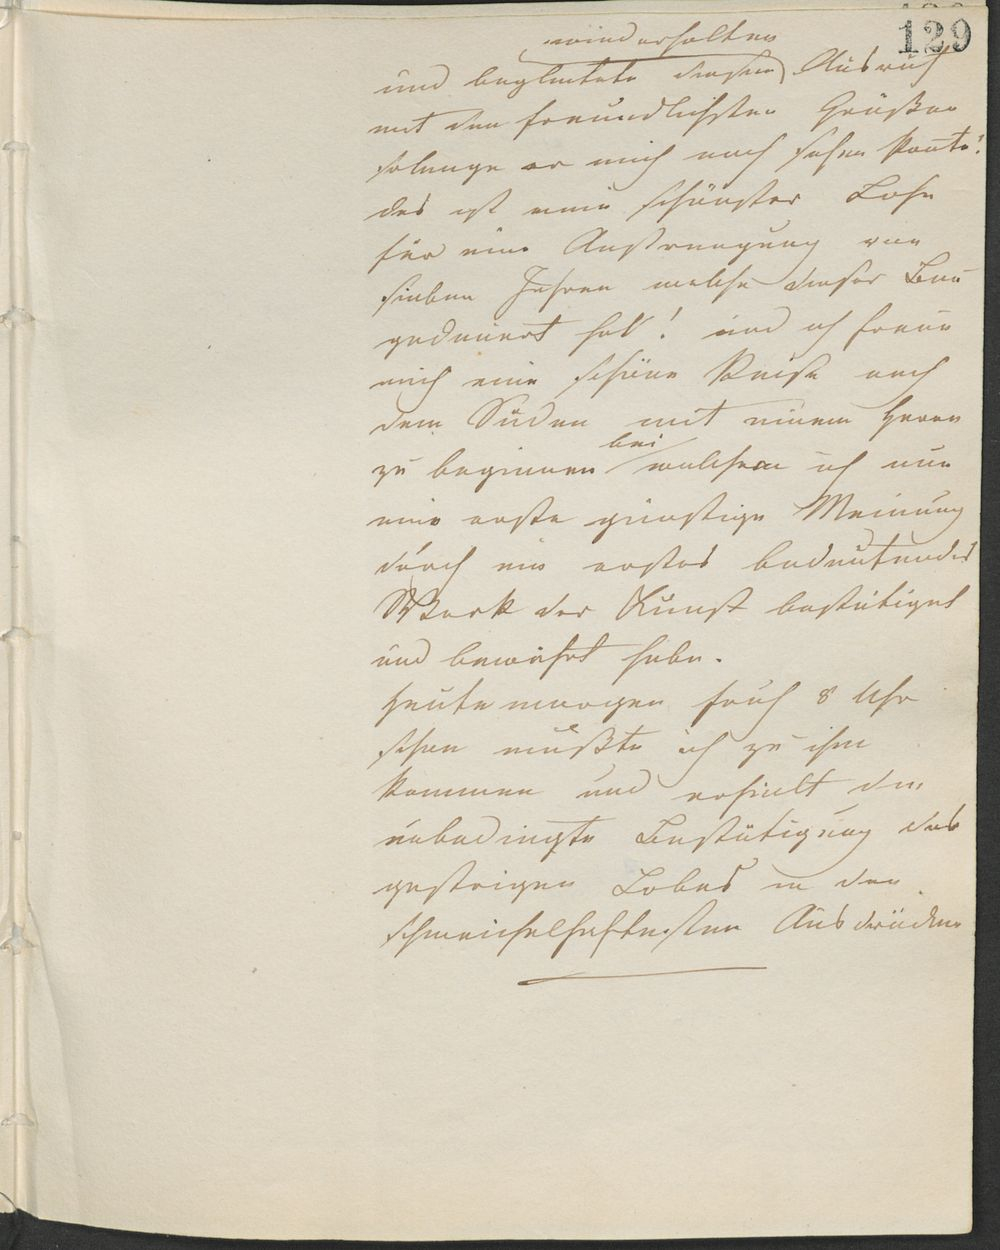 129
wiederholten
und begleitete diesen Ausruf
mit den freundlichsten Grüßen
solange er mich noch sehen konnte!
das ist mein schönster Lohn
für eine Anstrengung von
sieben Jahren welche dieser Bau
gedauert hat! und ich freue
mich eine schöne Reise nach
dem Süden mit einem Herrn
bei
zu beginnen welchem ich nun
eine erste günstige Meinung
durch ein erstes bedeutendes
Werk der Kunst bestätiget
und bewährt habe.
Heute morgen früh 8 Uhr
schon mußte ich zu ihm
kommen und erhielt die
unbedingte Bestätigung des
gestrigen Lobes in den
schmeichelhaftesten Ausdrücken